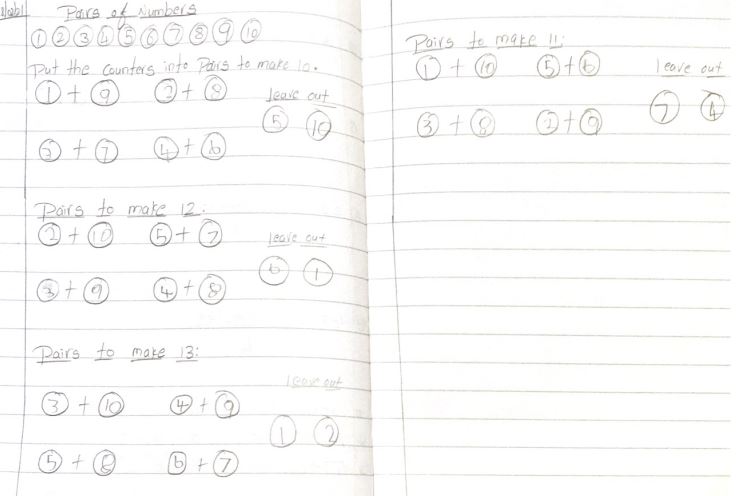 Pairs of Numbers
1 2 3 4 5 6 7 8 9 10
Put the counters into Pairs to make 10.
1 + 9 2 + 8
leave out
5 10
3 + 7 4 + 6
Pairs to make 12.
2 + 10 5 + 7
leave out
6 1
3 + 9 4 + 8
Pairs to make 13:
leave out
3 + 10 4 + 9
1 2
5 + 8 6 + 7
Pairs to make 11:
1 + 10 5 + 6
leave out
7 4
3 + 8 2 + 9